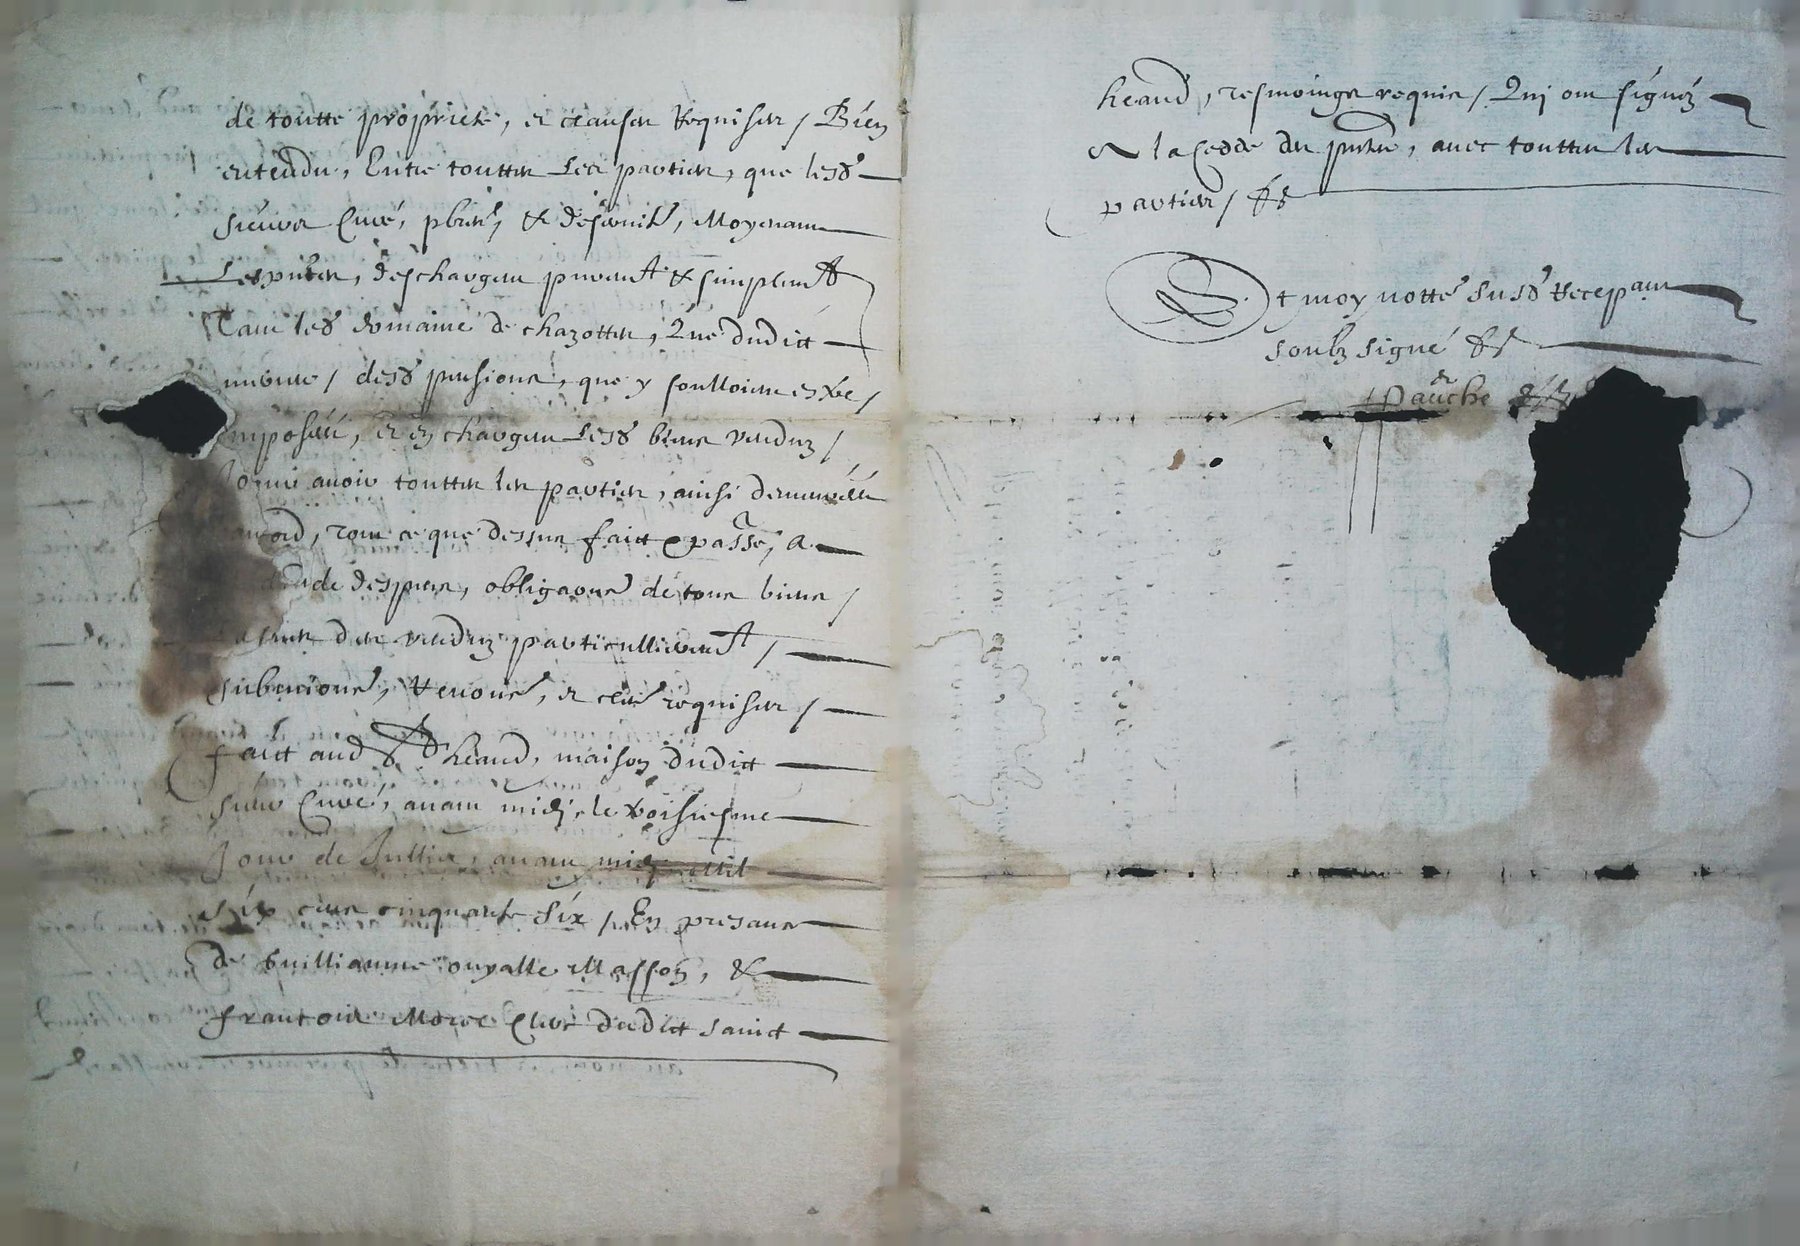 de toutte propriete, et clauses requises / Bien
entendu, Entre touttes Les parties, que lesd
sieurs Curé, pbres, & desservit, Moyenant
Les pntes, deschargent puremt & simplemt
Tant lesd domaine de chazottes, Que dudict
/ desd pensions, que y soulloient estre /
imposées, et en chargent Lesd biens vendus /
avoir touttes les parties, ainsi demeuré
accord, tout ce que dessus faict & passé, a
de despens, obligaons de tous biens /
des vendus particullieremt /
submions, renons, et clses requises /
faict aud St heand, maison dudict
sieur Curé, avant midj, le troisiesme
Jour de Juillet, avant midj Mil
six cens cinquante six / En presance
de Guilliaume Masson, &
francois Clerc dudict sainct
heand, tesmoings requis / Quj ont signéz
a la Cedde des pntes, avec touttes les
parties / &c
Et moy nottre susd Recepant
soubz signé &c
Pauche